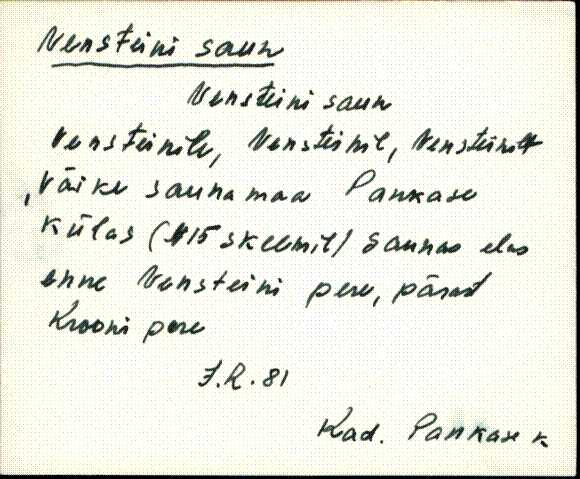 Vensteini saun
Vensteini saun
Vensteinile, Vensteinil, Vensteinilt
, Väike saunamaa Pankase
külas (#15 skeemil) Saunas elas
enne Vensteini pere, pärast
Krooni pere
J.R. 81
Kad. Pankase k